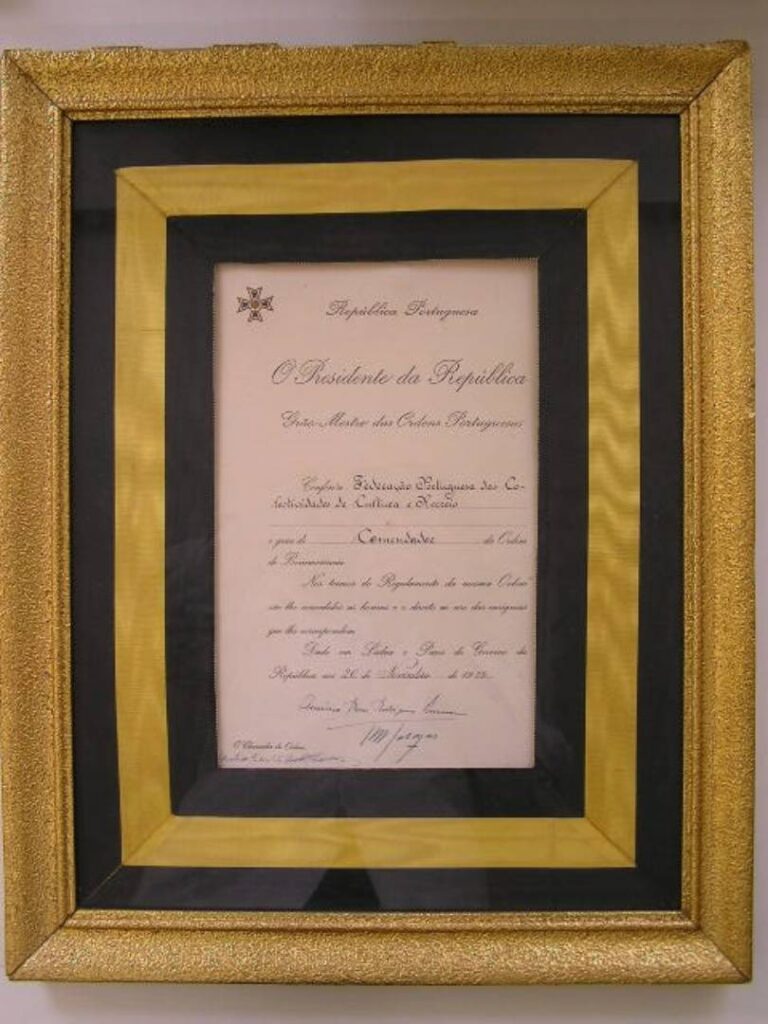 República Portuguesa
O Presidente da República
Grão-Mestre das Ordens Portuguesas
Confere Federação Portuguesa das Co-
lectividades de Cultura e Recreio
o grau de Comendador da Ordem
de Benemerência
Nos termos do Regulamento da mesma Ordem
são-lhe concedidas as honras e o direito ao uso das insígnias
que lhe correspondem
Dado em Lisboa e Paços do Governo da
República aos 20 de de 19
O Chanceler da Ordem